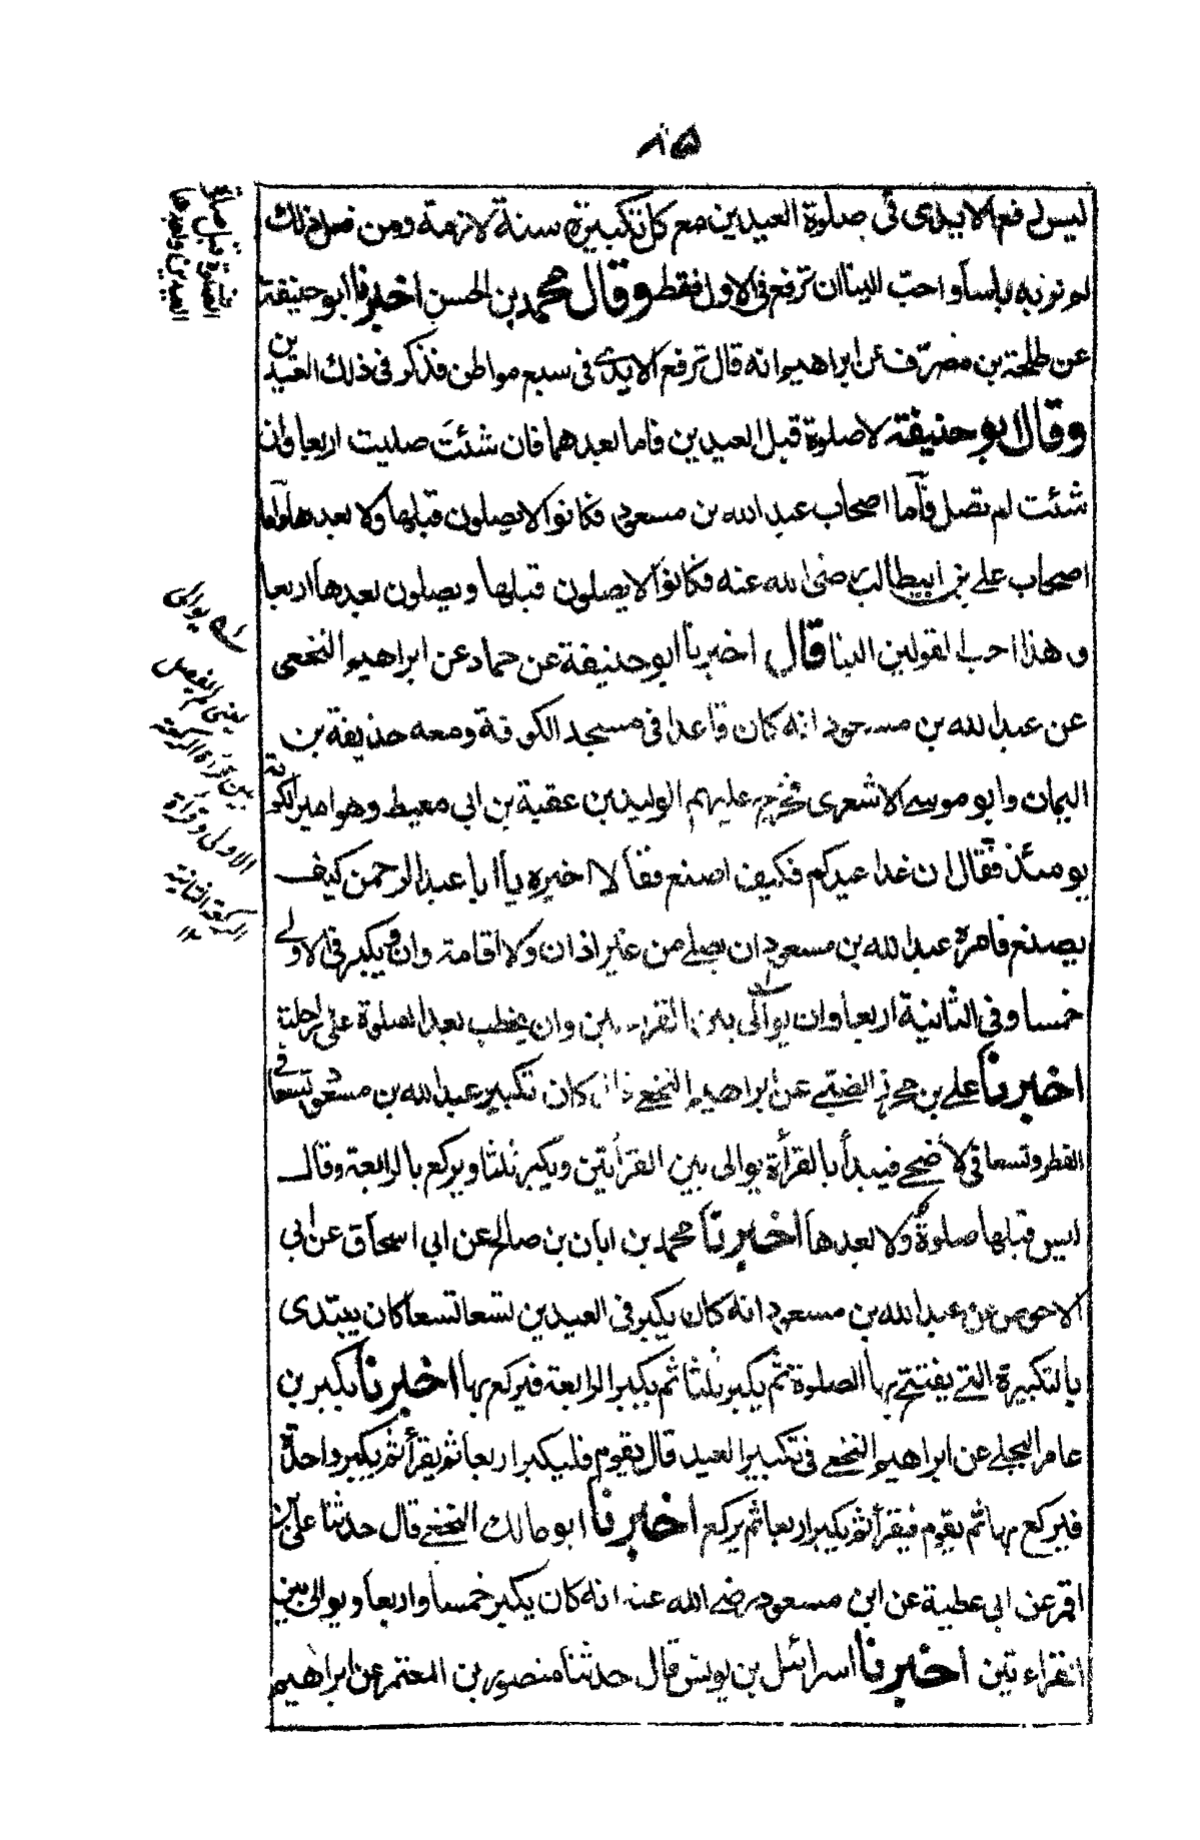 ٨٥
ليس رفع الايدى فى صلوة العيدين مع كل تكبيرة سنة لازمة ومن فعل ذلك
لم نر به باسا واحب الينا ان ترفع فى الاول فقط وقال محمد بن الحسن اخبرنا ابو حنيفة
عن طلحة بن مصرف عن ابراهيم انه قال ترفع الايدى فى سبع مواطن فذكر فى ذلك العيدين
وقال ابو حنيفة لا صلوة قبل العيدين فاما بعدهما فان شئت صليت اربعا وان
شئت لم تصل فاما اصحاب عبد الله بن مسعود فكانوا لا يصلون قبلها ولا بعدها واما
اصحاب على بن ابيطالب رضى الله عنه فكانوا لا يصلون قبلها ويصلون بعدها اربعا
وهذا احب القولين الينا قال اخبرنا ابو حنيفة عن حماد عن ابراهيم النخعى
عن عبد الله بن مسعود انه كان قاعدا فى مسجد الكوفة ومعه حذيفة بن
اليمان وابو موسى الاشعرى فخرج عليهم الوليد بن عقبة بن ابى معيط وهو امير الكوفة
يومئذ فقال ان غدا عيدكم فكيف اصنع فقالا اخبره يا ابا عبد الرحمن كيف
يصنع فامره عبد الله بن مسعود ان يصلى من غير اذان ولا اقامة وان يكبر فى الاولى
خمسا وفى الثانية اربعا وان يوالى بين القراءتين وان يخطب بعد الصلوة على راحلته
اخبرنا على بن محرز الضبى عن ابراهيم النخعى قال كان تكبير عبد الله بن مسعود تسعا فى
الفطر وتسعا فى الاضحى فيبدأ بالقرأة يوالى بين القرأتين ويكبر ثلثا ويركع بالرابعة وقال
ليس قبلها صلوة ولا بعدها اخبرنا محمد بن ابان بن صالح عن ابى اسحاق عن ابى
الاحوص عن عبد الله بن مسعود انه كان يكبر فى العيدين تسعا تسعا كان يبتدى
بالتكبيرة التى يفتتح بها الصلوة ثم يكبر ثلثا ثم يكبر الرابعة فيركع بها اخبرنا بكير بن
عامر البجلى عن ابراهيم النخعى فى تكبير العيد قال يقوم فليكبر اربعا ثم يقرأ ثم يكبر واحدة
فيركع بها ثم يقوم فيقرأ ثم يكبر اربعا ثم يركع اخبرنا ابو مالك النخعى قال حدثنا على بن
اقمر عن ابى عطية عن ابن مسعود رضى الله عنه انه كان يكبر خمسا واربعا ويوالى بين
القراءتين اخبرنا اسرائيل بن يونس قال حدثنا منصور بن المعتمر عن ابراهيم
الصلوة قبل صلوة
العيدين وبعدها
له يوالى
يعنى لم يفصل
بين قرأة الركعة
الاولى وقرأة
الركعة الثانية
١٢